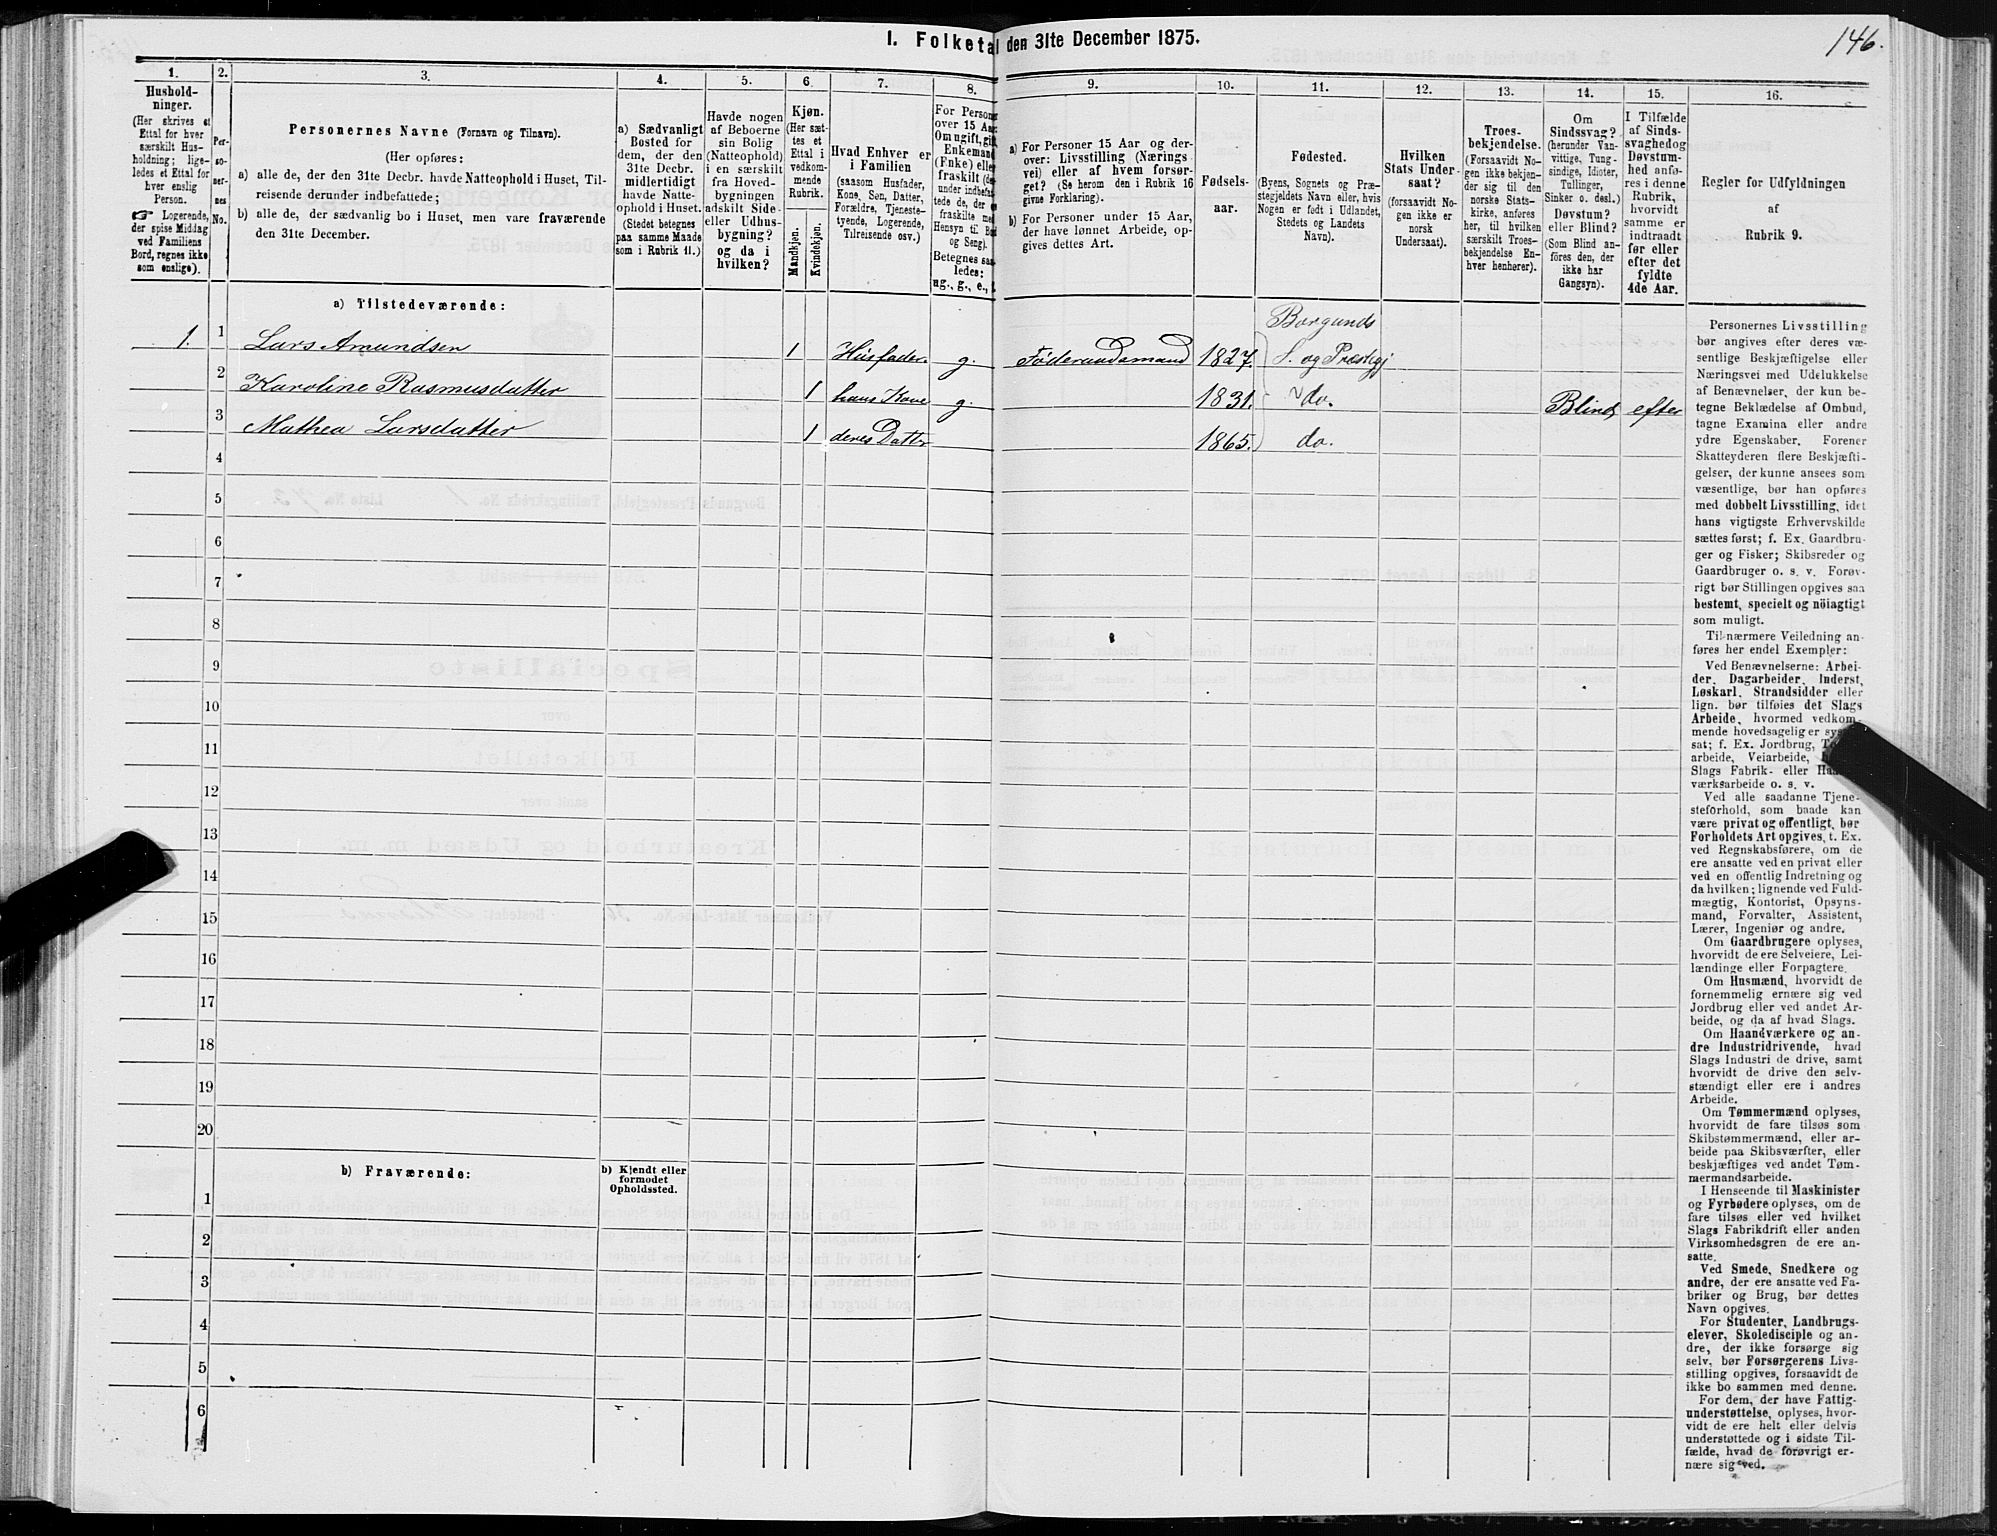 146.
I. Folketal den 31te December 1875.
1.
Hushold-
ninger.
(Her skrives et
Ettal for hver
særskilt Hus-
holdning; lige-
ledes et Ettal for
hver enslig
Person.
☞ Logerende,
der spise Middag
ved Familiens
Bord, regnes ikke
som enslige).
2.
Per-
so-
ner-
nes
No.
3.
Personernes Navne (Fornavn og Tilnavn).
(Her opføres:
a) alle de, der den 31te Decbr. havde Natteophold i Huset, Til-
reisende derunder indbefattede;
b) alle de, der sædvanlig bo i Huset, men vare fraværende
den 31te December.
4.
a) Sædvanligt
Bosted for
dem, der den
31te Decbr.
midlertidigt
havde Natte-
ophold i Huset.
(Stedet betegnes
paa samme Maade
som i Rubrik 11.)
5.
Havde nogen
af Beboerne
sin Bolig
(Natteophold)
i en særskilt
fra Hoved-
bygningen
adskilt Side-
eller Udhus-
bygning?
og da i
hvilken?
6.
Kjøn.
(Her sæt-
tes et
Ettal i
vedkom-
mende
Rubrik.
Mandkjøn.
Kvindekjøn.
7.
Hvad Enhver er
i Familien
(saasom Husfader,
Kone, Søn, Datter,
Forældre, Tjeneste-
tyende, Logerende,
Tilreisende osv.).
8.
For Personer
over 15 Aar:
Om ugift, gift,
Enkemand
(Enke) eller
fraskilt (der-
under indbefat-
tede de, der ere
fraskilte med
Hensyn til Bord
og Seng).
Betegnes saa-
ledes:
ug., g., e., f.
9.
a) For Personer 15 Aar og der-
over: Livsstilling (Nærings
vei) eller af hvem forsør-
get? (Se herom den i Rubrik 16
givne Forklaring).
b) For Personer under 15 Aar,
der have lønnet Arbeide, op-
gives dettes Art.
10.
Fødsels-
aar.
11.
Fødested.
(Byens, Sognets og Præ-
stegjeldets Navn eller, hvis
Nogen er født i Udlandet,
Stedets og Landets
Navn).
12.
Hvilken
Stats Under-
saat?
(forsaavidt No-
gen ikke er
norsk
Undersaat).
13.
Troes-
bekjendelse.
(Forsaavidt No-
gen ikke bekjen-
der sig til den
norske Stats-
kirke, anføres
her, til hvilken
særskilt Troes-
bekjendelse En-
hver henhører).
14.
Om
Sindssvag?
(herunder Van-
vittige, Tung-
sindige, Idioter,
Tullinger,
Sinker o. desl.)
Døvstum?
eller Blind?
(Som Blind an-
føres den, der
ikke har
Gangsyn).
15.
I Tilfælde
af Sinds-
svaghed og
Døvstum-
hed anfø-
res i denne
Rubrik,
hvorvidt
samme er
indtraadt
før eller
efter det
fyldte
4de Aar.
16.
Regler for Udfyldningen
af
Rubrik 9.
a) Tilstedeværende:
Borgunds
1. 1 Lars Amundsen 1 Husfader g. Føderaadsmand 1827. S. og Præstegj
2 Karoline Rasmusdatter 1 hans Kone g. 1831. do. Blind efter
3 Mathea Larsdatter 1 deres Dattr 1865. do.
4
5
6
7
8
9
10
11
12
13
14
15
16
17
18
19
20
b) Fraværende:
b) Kjendt eller
formodet
Opholdssted.
1
2
3
4
5
6
Personernes Livsstilling
bør angives efter deres væ-
sentlige Beskjæftigelse eller
Næringsvei med Udelukkelse
af Benævnelser, der kun be-
tegne Beklædelse af Ombud,
tagne Examina eller andre
ydre Egenskaber. Forener
Skatteyderen flere Beskjæfti-
gelser, der kunne ansees som
væsentlige, bør han opføres
med dobbelt Livsstilling, idet
hans vigtigste Erhvervskilde
sættes først; f. Ex. Gaardbru-
ger og Fisker; Skibsreder og
Gaardbruger o. s. v. Forøv-
rigt bør Stillingen opgives saa
bestemt, specielt og nöiagtigt
som muligt.
Til nærmere Veiledning an-
føres her endel Exempler:
Ved Benævnelserne: Arbei-
der, Dagarbeider, Inderst,
Løskarl, Strandsidder eller
lign. bør tilføies det Slags
Arbeide, hvormed vedkom-
mende hovedsagelig er sys
sat; f. Ex. Jordbrug,
arbeide, Veiarbeide,
Slags Fabrik- eller
værksarbeide o. s. v.
Ved alle saadanne Tjene-
steforhold, som baade kan
være privat og offentligt, bør
Forholdets Art opgives, t. Ex.
ved Regnskabsførere, om de
ere ansatte ved en privat eller
ved en offentlig Indretning og
da hvilken; lignende ved Fuld-
mægtig, Kontorist, Opsyns-
mand, Forvalter, Assistent,
Lærer, Ingeniør og andre.
Om Gaardbrugere oplyses,
hvorvidt de ere Selveiere, Lei-
lændinge eller Forpagtere.
Om Husmænd, hvorvidt de
fornemmelig ernære sig ved
Jordbrug eller ved andet Ar-
beide, og da af hvad Slags.
Om Haandværkere og an-
dre Industridrivende, hvad
Slags Industri de drive, samt
hvorvidt de drive den selv-
stændigt eller ere i andres
Arbeide.
Om Tømmermænd oplyses,
hvorvidt de fare tilsøs som
Skibstømmermænd, eller ar-
beide paa Skibsværfter, eller
beskjæftiges ved andet Tøm-
mermandsarbeide.
I Henseende til Maskinister
og Fyrbødere oplyses, om de
fare tilsøs eller ved hvilket
Slags Fabrikdrift eller anden
Virksomhedsgren de ere an-
satte.
Ved Smede, Snedkere og
andre, der ere ansatte ved Fa-
briker og Brug, bør dettes
Navn opgives.
For Studenter, Landbrugs-
elever, Skoledisciple og an-
dre, der ikke forsørge sig
selv, bør Forsørgerens Livs-
stilling opgives, forsaavidt de
ikke bo sammen med denne.
For dem, der have Fattig-
understøttelse, oplyses, hvor-
vidt de ere helt eller delvis
understøttede og i sidste Til-
fælde, hvad de forøvrigt er-
nære sig ved.